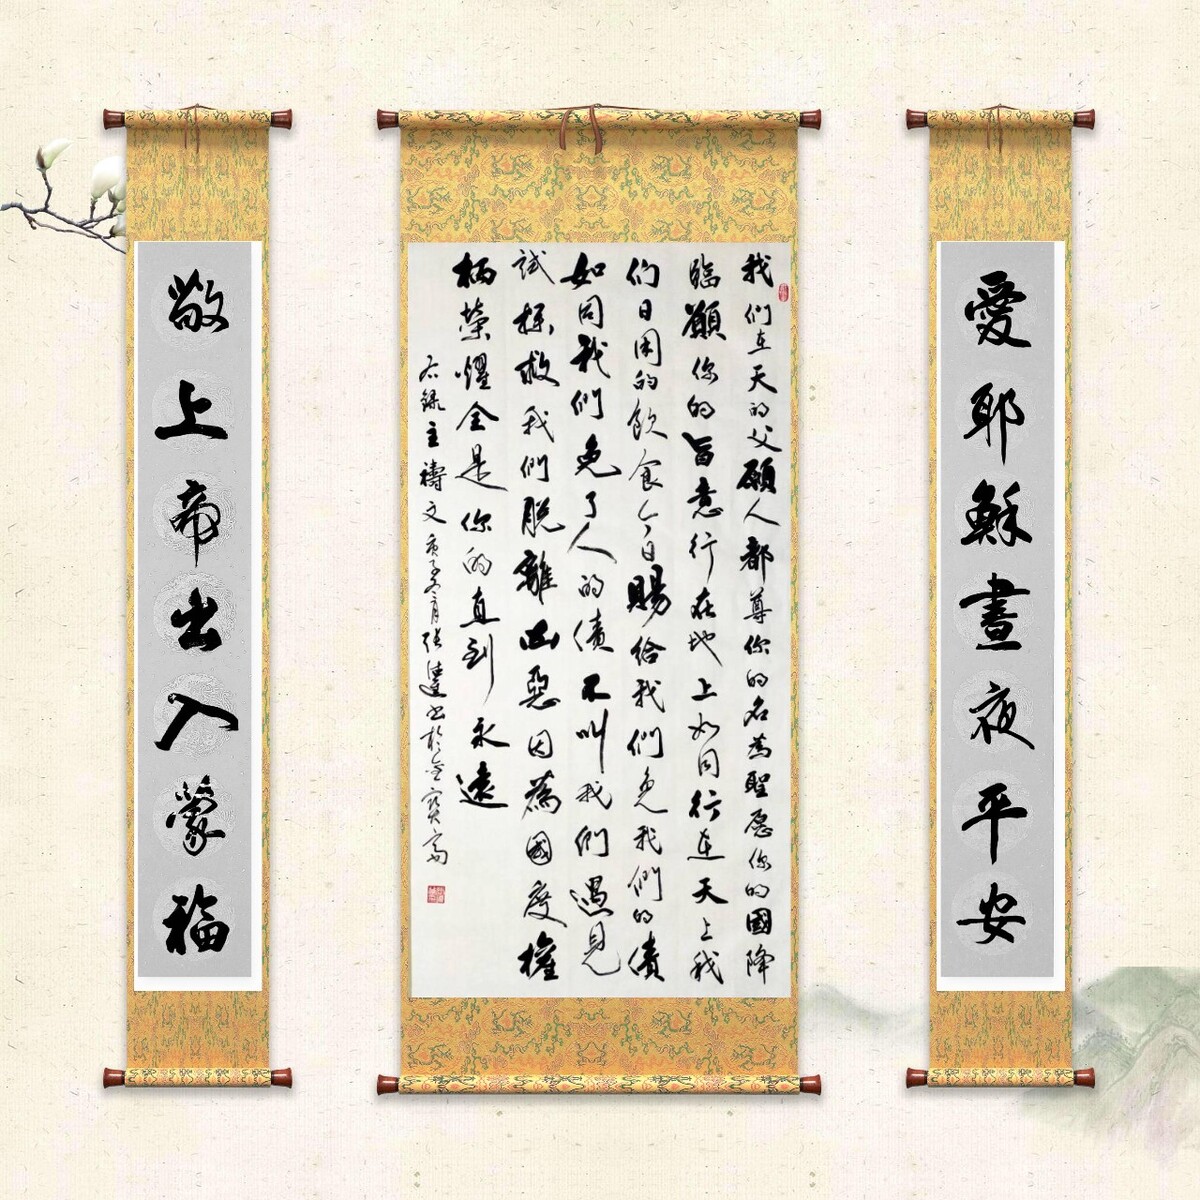 愛耶穌晝夜平安
我们在天的父願人都尊你的名為聖愿你的國降
臨願你的旨意行在地上如同行在天上我
们日用的飲食今日賜给我們免我們的債
如同我們免了人的債不叫我們遇見
試探救我們脱離凶惡因為國度權
柄榮耀全是你的直到永遠
右錄主禱文庚子冬月張
敬上帝出入蒙福